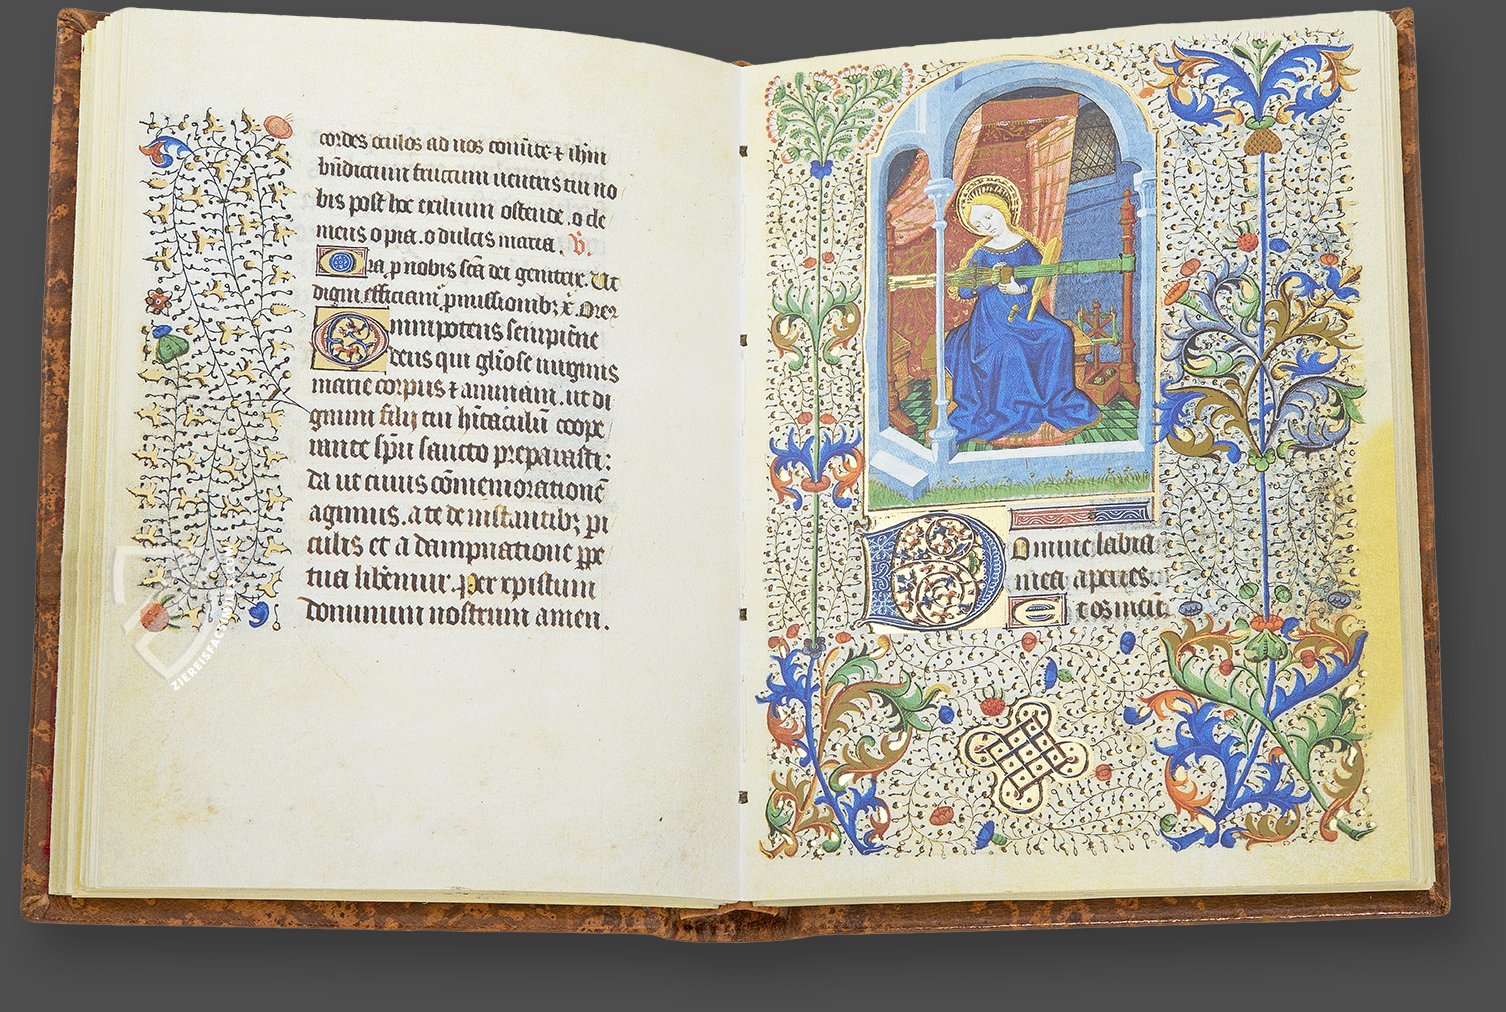 cordes oculos ad nos conūte ⁊ ihm̄
bn̄dictum fructum uentris tui no
bis post hoc exilium ostende .o cle
mens o pia .o dulcis maria. v̄.
Ora p nobis sc̄a dei genitrix. Ut
digni efficiam̄ pmissionibꝫ x̄. Orer
Omnipotens sempitn̄e
deus qui gl̄iose uirginis
marie corpus ⁊ animam .ut di
gnum filij tui hītaculū coope
rante sp̄u sancto preparasti:
da ut cuius cōmemorationē
agimus .a te de instantibꝫ pi
culis et a dampnatione ppe
tua libemur. per xp̄istum
dominum nostrum amen.
Domine labia
mea aperies.
et os meū
ZIEREISFACSIMILES.COM